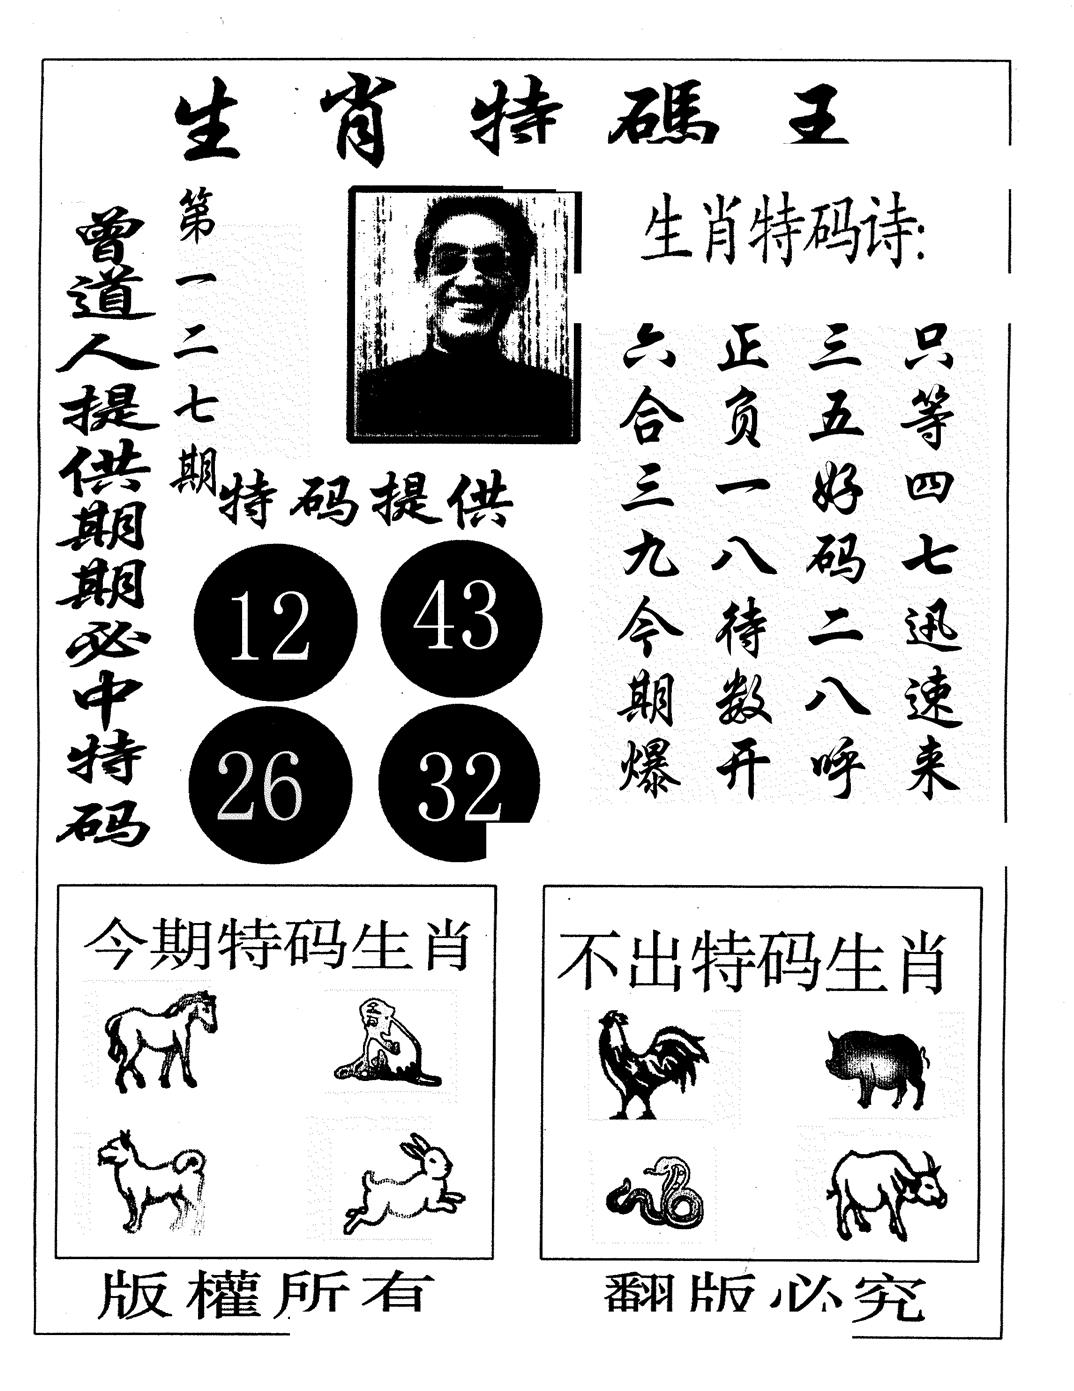 生肖特碼王
曾道人提供期期必中特码
第一二七期
生肖特码诗:
六合三九今期爆
正负一八待数开
三五好码二八呼
只等四七迅速来
特码提供
12 43
26 32
今期特码生肖
不出特码生肖
版權所有
翻版必究